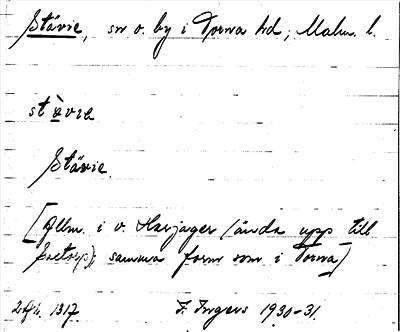 Stävie, sn o. by i Torna hd; Malm. l.
stävie
Stävie.
[Allm. i v. Harjager (ända upp till
samma form som i Torna]
1317. I. Ingers 1930-31.